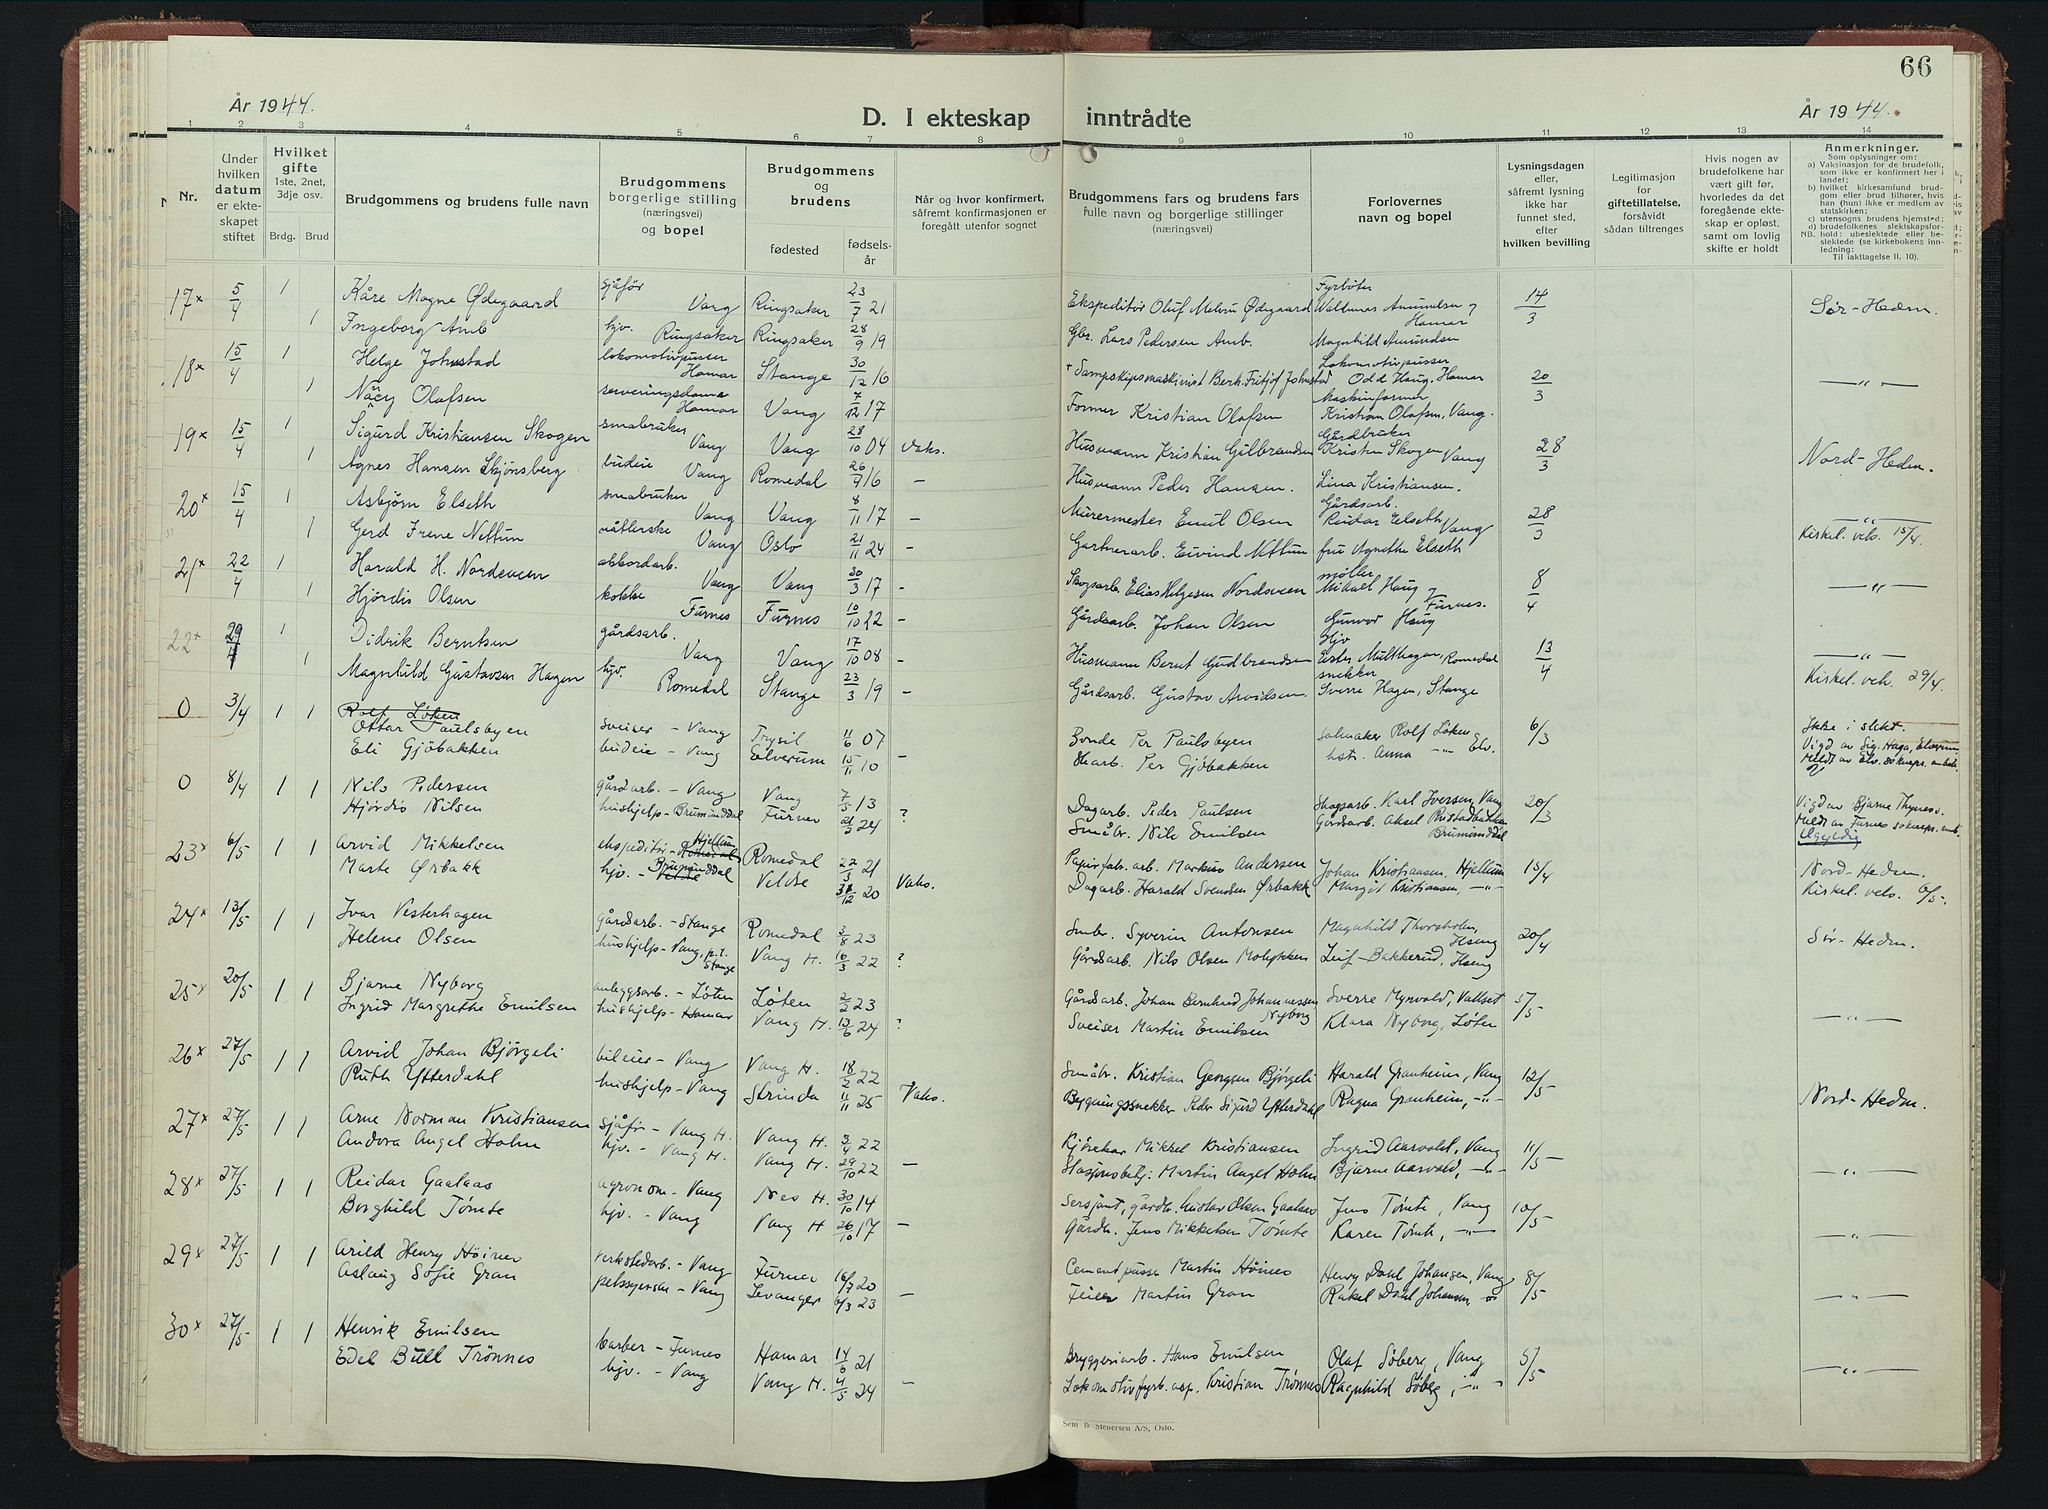 66
År 1944. D. I ekteskap inntrådte År 1944.
1 2 3 4 5 6 7 8 9 10 11 12 13 14
Nr.
Under hvilken datum er ekteskapet stiftet
Hvilket gifte 1ste, 2net, 3dje osv.
Brdg. Brud
Brudgommens og brudens fulle navn
Brudgommens borgerlige stilling (næringsvei) og bopel
Brudgommens og brudens
fødested fødselsår
Når og hvor konfirmert, såfremt konfirmasjonen er foregått utenfor sognet
Brudgommens fars og brudens fars fulle navn og borgerlige stillinger (næringsvei)
Forlovernes navn og bopel
Lysningsdagen eller, såfremt lysning ikke har funnet sted, efter hvilken bevilling
Legitimasjon for giftetillatelse, forsåvidt sådan tiltrenges
Hvis nogen av brudefolkene har vært gift før, hvorledes da det foregående ekteskap er opløst, samt om lovlig skifte er holdt
Anmerkninger.
Som oplysninger om:
a) Vaksinasjon for de brudefolk, som ikke er konfirmert her i landet;
b) hvilket kirkesamfund brudgom eller brud tilhører, hvis han (hun) ikke er medlem av statskirken;
c) utensogns brudens hjemsted;
d) brudefolkenes slektskapsforhold: ubeslektede eller beslektede (se kirkebokens innledning:
NB. Til iakttagelse II. 10).
17x 5/4 1 Kåre Magne Ødegaard sjåfør Vang Ringsaker 23/7 21 Ekspeditør Oluf Melvin Ødegaard Fyrbøter Waldemar Amundsen Hamar 14/3 Sør-Hedm.
1 Ingeborg Amb hjv. Ringsaker Ringsaker 28/9 19 Gbr. Lars Pedersen Amb. Magnhild Amundsen
18x 15/4 1 Helge Johnstad lokomotivpusser Hamar Stange 30/12 16 + Dampskipsmaskinist Berh. Fritjof Johnstad Lokomotivpusser Odd Haug, Hamar 20/3 —"—
1 Nancy Olafsen serveringsdame Hamar Vang 7/12 17 Former Kristian Olafsen Maskinformer Kristian Olafsen, Vang.
19x 15/4 1 Sigurd Kristiansen Skogen småbruker Vang Vang 28/10 04 Vaks. Husmann Kristian Gulbrandsen Gårdbruker Kristian Skogen Vang 28/3 Nord-Hedm.
1 Agnes Hansen Skjønsberg budeie Vang Romedal 26/9 16 — Husmann Peder Hansen. Lina Kristiansen.
20x 15/4 1 Asbjørn Elseth småbruker Vang Vang 8/11 17 — Murermester Emil Olsen Gårdsarb. Reidar Elseth Vang 28/3 —"—
1 Gerd Irene Nettum nåtlerske Vang Oslo 21/11 24 — Gartnerarb. Eivind Nettum fru Agnethe Elseth Kirkel. vels. 15/4.
21x 22/4 1 Harald H. Nordsveen akkordarb. Vang Vang 30/3 17 — Skogsarb. Elias Helgesen Nordsveen møller Mikael Haug Furnes. 8/4 —"—
1 Hjørdis Olsen kokke Furnes Furnes 10/10 22 — Gårdsarb. Johan Olsen Gunvor Haug
22x 29/4 1 Didrik Berntsen gårdsarb. Vang Vang 17/10 08 — Husmann Bernt Gudbrandsen Hjv Ester Multhagen, Romedal 13/4 —"—
1 Magnhild Gustavsen Hagen hjv. Romedal Stange 23/3 19 — Gårdsarb. Gustav Arvidsen snekker Sverre Hagen, Stange Kirkel. vels. 29/4.
0 3/4 1 1 Rolf Løken
Ottar Paulsbyen sveiser - Vang Trysil 11/6 07 Bonde Per Paulsbyen salmaker Rolf Løken 6/3 Ikke i slekt.
Eli Gjøbakken budeie - Vang Elverum 15/11 10 — Skarb. Per Gjøbakken hstr. Anna —"— Elv. Vigd av Sig. Haga, Elverum Meldt av Elv. sokneprestemb.
0 8/4 1 1 Nils Pedersen gårdarb. - Vang Vang 7/5 13 Dagarb. Peder Paulsen Skogsarb. Karl Iversen, Vang 20/3 Vigd av Bjarne Thynes.
Hjørdis Nilsen hushjelp - Brumunddal Furnes 21/3 24 ? Småbr. Nils Emilsen Gårdsarb. Aksel Rustadbakken Brumunddal Meldt av Furnes soknepr. emb. Ugyldig
23x 6/5 1 1 Arvid Mikkelsen ekspeditør - Hjellum Romedal Romedal 22/3 21 Papirfabr. arb. Markus Andersen Johan Kristiansen, Hjellum 15/4 Nord-Hedm.
Marte Ørbakk hjv. - Brumunddal Veldre Veldre 31/12 20 Vaks. Dagarb. Harald Svendsen Ørbakk Margit Kristiansen, —"— Kirkel. vels. 6/5.
24x 13/5 1 1 Ivar Vesterhagen gårdsarb. - Stange Romedal 3/8 23 Smbr. Syverin Antonsen Magnhild Thorsholm, Hseng 20/4 Sør-Hedm.
Helene Olsen hushjelp - Vang, p.t. Stange Vang H. 10/3 22 ? Gårdsarb. Nils Olsen Molykken Leif Bakkerud, Hseng
25x 20/5 1 1 Bjarne Nyborg anleggsarb. - Løten Løten 2/2 23 Gårdsarb. Johan Bernhard Johannessen Nyborg Sverre Myrvold, Vallset 5/5 —"—
Ingrid Margrethe Emilsen hushjelp - Hamar Vang H. 13/6 24 ? Sveiser Martin Emilsen Klara Nyborg, Løten
26x 27/5 1 1 Arvid Johan Bjørgeli bileier - Vang Vang H. 18/2 22 Småbr. Kristian Georgsen Bjørgeli Harald Granheim, Vang 12/5 Nord-Hedm.
Ruth Ytterdahl hushjelp - Vang Strinda 11/11 25 Vaks. Bygningssnekker Peder Sigurd Ytterdahl Ragna Granheim, —"—
27x 27/5 1 1 Arne Norman Kristiansen sjåfør - Vang H. Vang H. 3/4 22 Kjørekar Mikkel Kristiansen Ingrid Aarvold, Vang 11/5 —"—
Andora Angel Holm hjv. - Vang H. Vang H. 29/10 22 — Stasjonsbetj. Martin Angel Holm Bjarne Aarvold, —"—
28x 27/5 1 1 Reidar Gaalaas agronom - Vang Nes H. 30/10 14 Sersjant, gårdbr. Gustav Olsen Gaalaas Jens Tømte, Vang 10/5 —"—
Borghild Tømte hjv. - Vang Vang H 26/10 17 — Gårdbr. Jens Mikkelsen Tømte Karen Tømte, —"—
29x 27/5 1 1 Arild Henry Høines verkstedarb. - Vang Furnes 16/7 20 Cementpusser Martin Høines Henry Dahl Johansen, Vang 8/5 —"—
Aslaug Sofie Gran pelssyerske - Vang Levanger 6/3 23 — Feier Martin Gran Rakel Dahl Johansen, —"—
30x 27/5 1 1 Henrik Emilsen barber - Furnes Hamar 14/6 21 Bryggeriarb. Hans Emilsen Olaf Søberg, Vang 5/5 —"—
Edel Bull Trønnes hjv. - Vang Vang H. 4/5 24 — Lokomotivfyrb. asp. Kristian Trønnes Ragnhild Søberg, —"—
Sem & Stenersen A/S, Oslo.